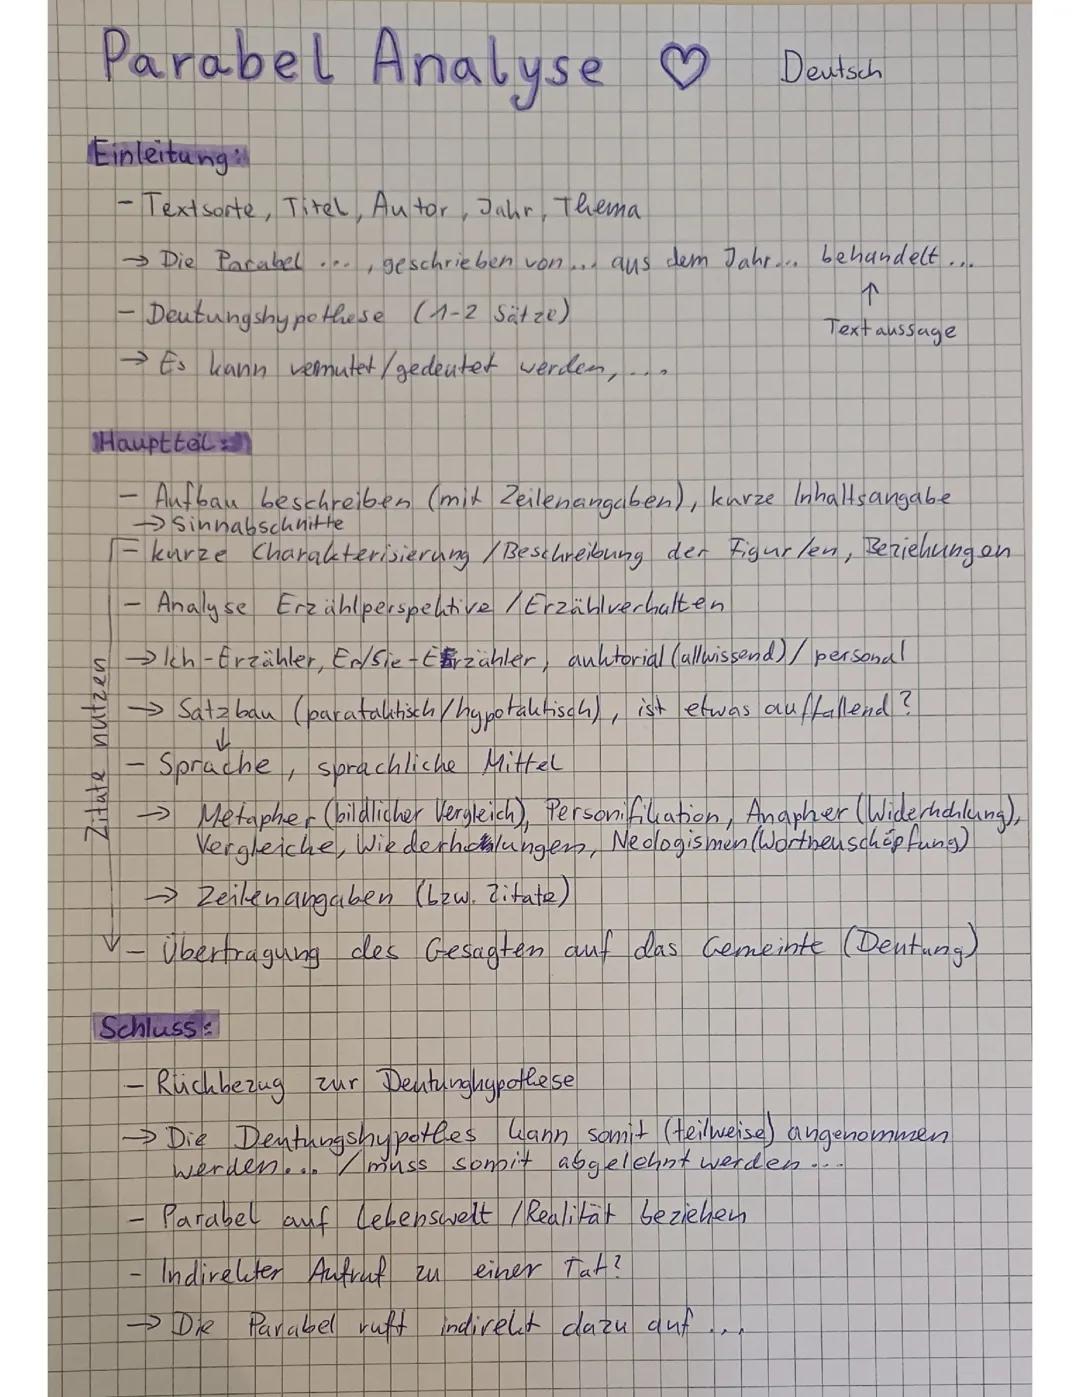 Parabel Analyse ♡ Deutsch
Einleitung:
- Textsorte, Titel, Autor, Jahr, Thema
→ Die Parabel ..., geschrieben von ... aus dem Jahr... behandelt ...
↑
- Deutungshypothese (1-2 Sätze)
Textaussage
→ Es kann vermutet/gedeutet werden, ...
Hauptteil:
- Aufbau beschreiben (mit Zeilenangaben), kurze Inhaltsangabe
→ Sinnabschnitte
- kurze Charakterisierung / Beschreibung der Figur/en, Beziehungen
- Analyse Erzählperspektive / Erzählverhalten
→ Ich-Erzähler, Er/Sie-Erzähler, auktorial (allwissend) / personal
→ Satzbau (parataktisch/hypotaktisch), ist etwas auffallend?
↓
- Sprache, sprachliche Mittel
→ Metapher (bildlicher Vergleich), Personifikation, Anapher (Widerhohlung),
Vergleiche, Wiederholungen, Neologismen (Wortneuschöpfung)
→ Zeilenangaben (bzw. Zitate)
- Übertragung des Gesagten auf das Gemeinte (Deutung)
Zitate nutzen
Schluss:
- Rückbezug zur Deutunghypothese
→ Die Deutungshypothes kann somit (teilweise) angenommen
werden... / muss somit abgelehnt werden ...
- Parabel auf Lebenswelt / Realität beziehen
- Indirekter Aufruf zu einer Tat?
→ Die Parabel ruft indirekt dazu auf ...